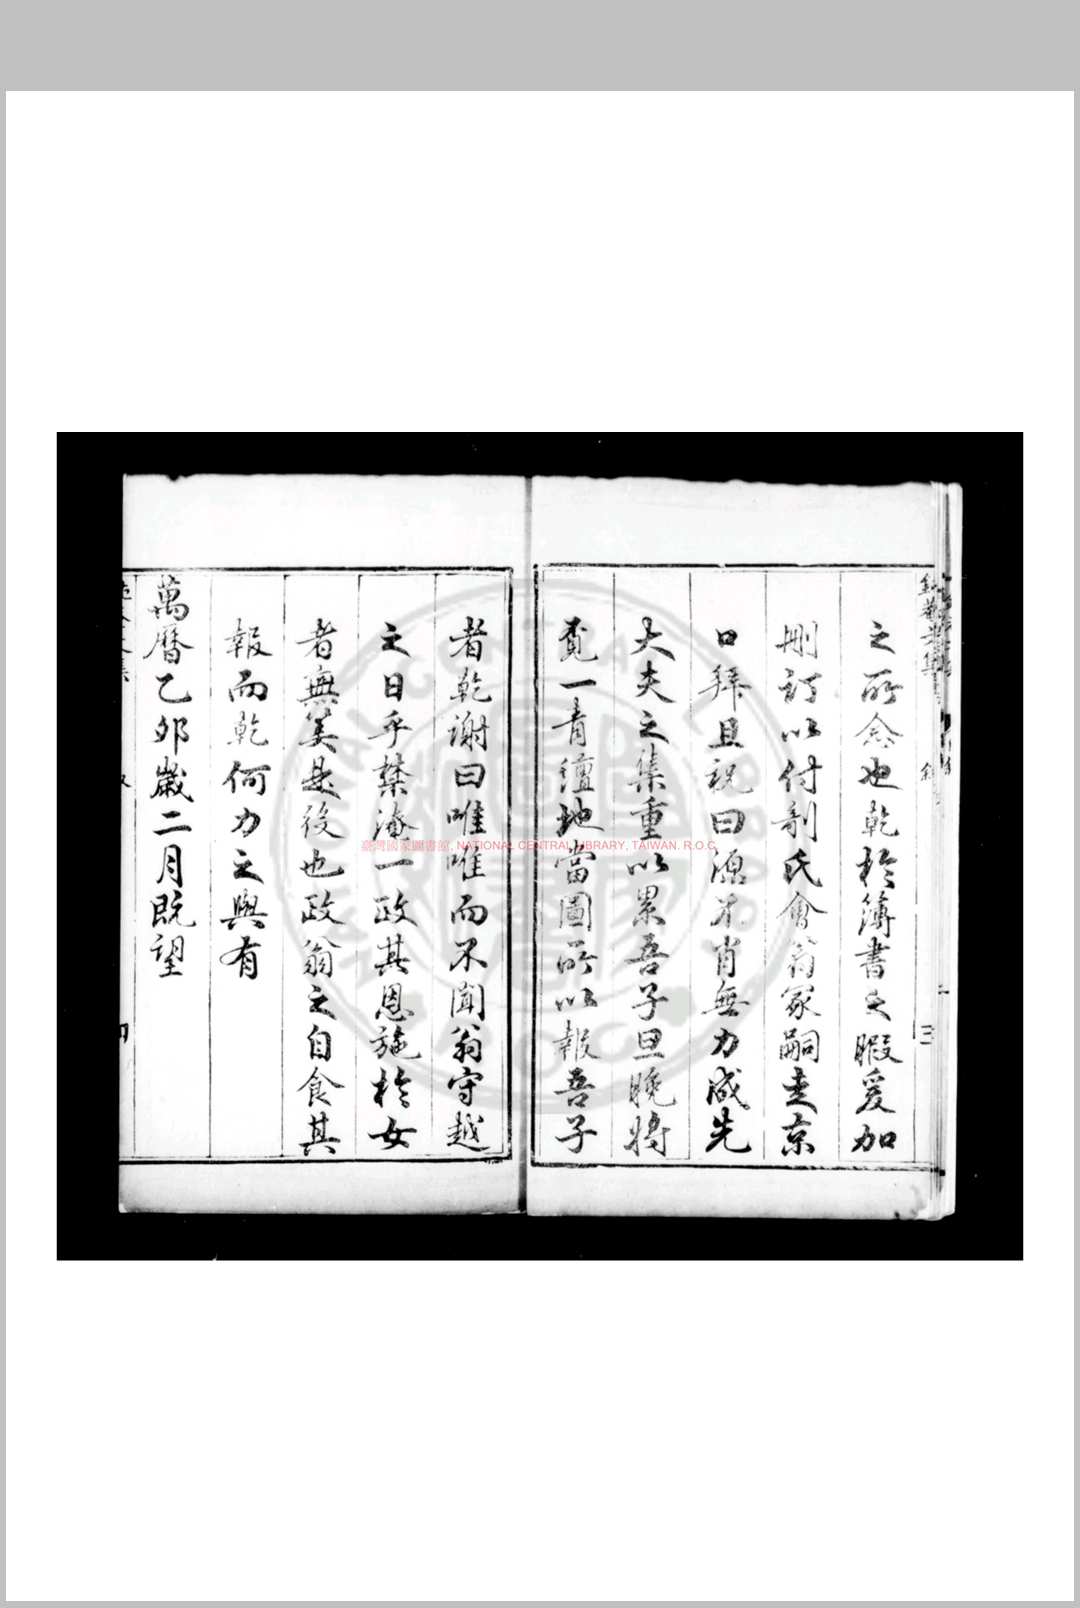 之所念也乾於簿書之暇爰加
刪訂以付剞氏會翁冢嗣走京
口拜且祝曰源不肖無力成先
大夫之集重以累吾子旦晚將
覓一青壇地當圖所以報吾子
者乾謝曰唯唯而不聞翁守越
之日乎槩淹一政其恩施於女
者無筭是後也政翁之自食其
報而乾何力之與有
萬曆乙卯歲二月既望
臺灣國家圖書館, NATIONAL CENTRAL LIBRARY, TAIWAN, R.O.C.